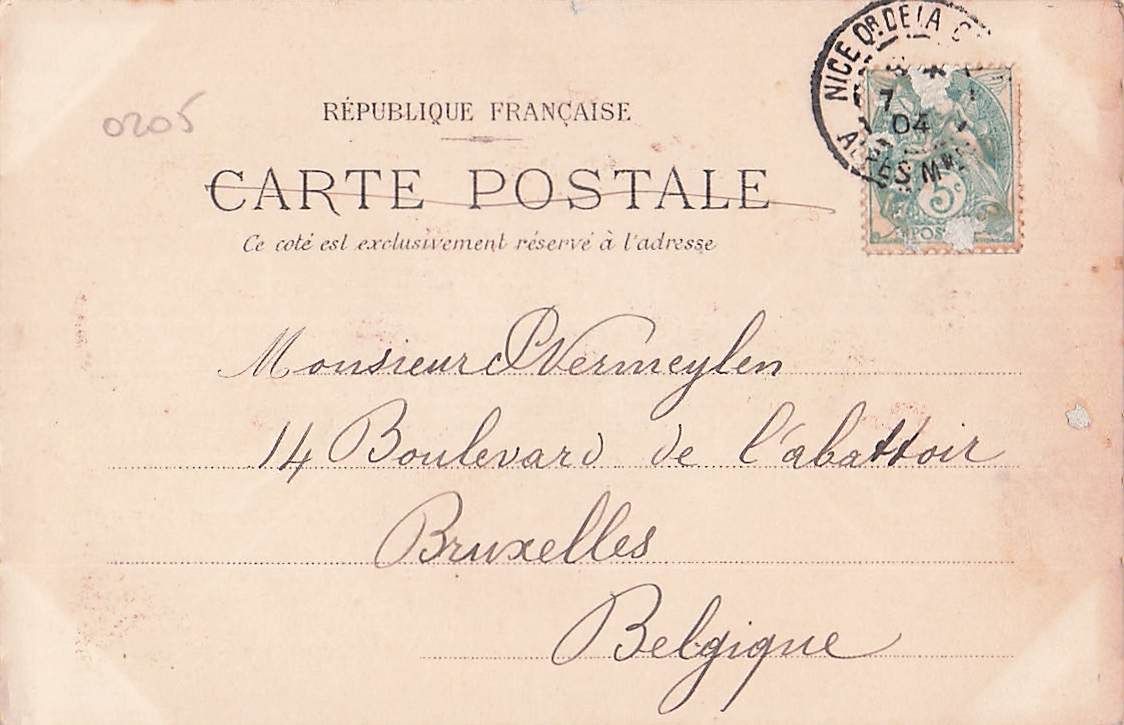 0205
RÉPUBLIQUE FRANÇAISE
CARTE POSTALE
Ce coté est exclusivement réservé à l'adresse
NICE Qr. DE LA
7
04
5c
POS
Monsieur P Vermeylen
14 Boulevard de l'abattoir
Bruxelles
Belgique